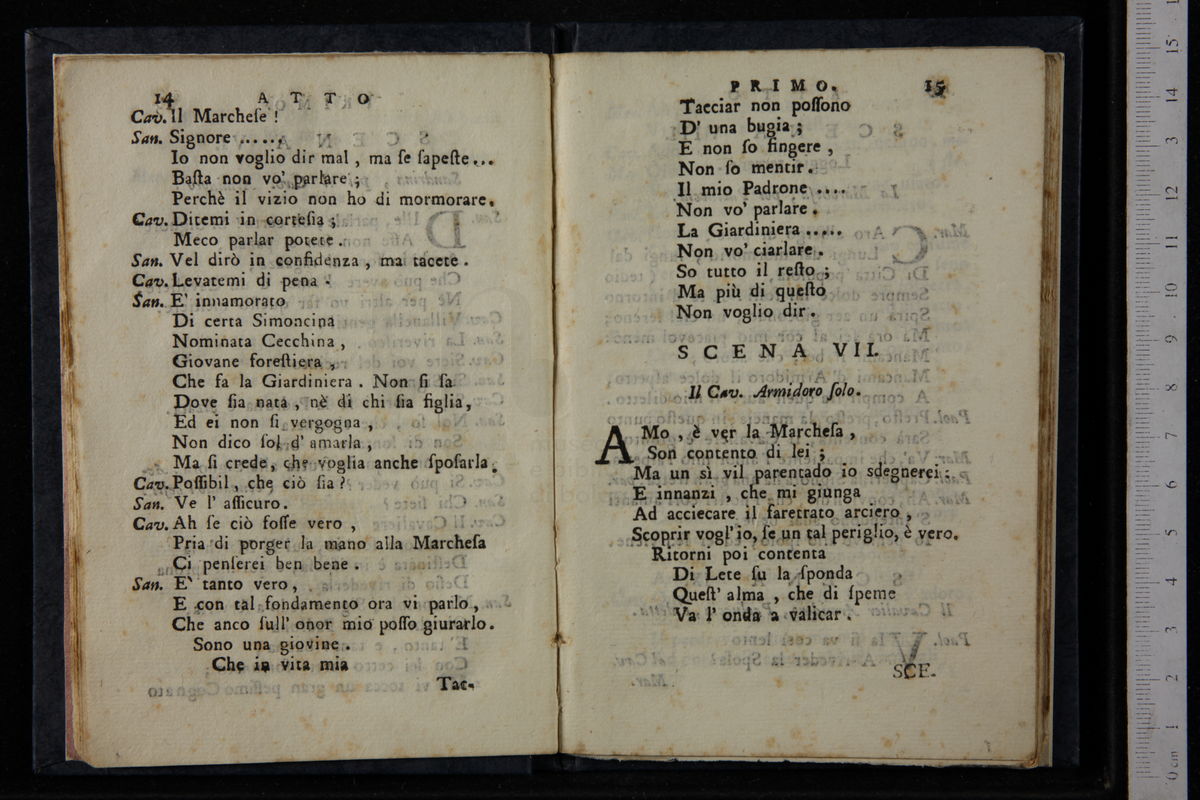 14 ATTO
Cav. Il Marcheſe !
San. Signore ......
Io non voglio dir mal , ma ſe ſapeſte...
Baſta non vo' parlare ;
Perchè il vizio non ho di mormorare.
Cav. Ditemi in corteſia ;
Meco parlar potete .
San. Vel dirò in confidenza , ma tacete .
Cav. Levatemi di pena .
San. E' innamorato
Di certa Simoncina
Nominata Cecchina ,
Giovane foreſtiera ,
Che fa la Giardiniera . Non ſi ſa
Dove ſia nata , nè di chi ſia figlia,
Ed ei non ſi vergogna ,
Non dico ſol d' amarla ,
Ma ſi crede, che voglia anche ſpoſarla.
Cav. Poſſibil , che ciò ſia ?
San. Ve l' aſſicuro.
Cav. Ah ſe ciò foſſe vero ,
Pria di porger la mano alla Marcheſa
Ci penſerei ben bene .
San. E' tanto vero ,
E con tal fondamento ora vi parlo ,
Che anco ſull' onor mio poſſo giurarlo.
Sono una giovine .
Che in vita mia
Tac-
PRIMO. 15
Tacciar non poſſono
D' una bugia ;
E non ſo fingere ,
Non ſo mentir .
Il mio Padrone ....
Non vo' parlare .
La Giardiniera .....
Non vo' ciarlare .
So tutto il reſto ;
Ma più di queſto
Non voglio dir .
SCENA VII.
Il Cav. Armidoro ſolo.
AMo , è ver la Marcheſa ,
Son contento di lei ;
Ma un sì vil parentado io sdegnerei ;
E innanzi , che mi giunga
Ad acciecare il faretrato arciero ,
Scoprir vogl' io, ſe un tal periglio, è vero.
Ritorni poi contenta
Di Lete ſu la ſponda
Queſt' alma , che di ſpeme
Va l' onda a valicar .
SCE-
0 cm 1 2 3 4 5 6 7 8 9 10 11 12 13 14 15